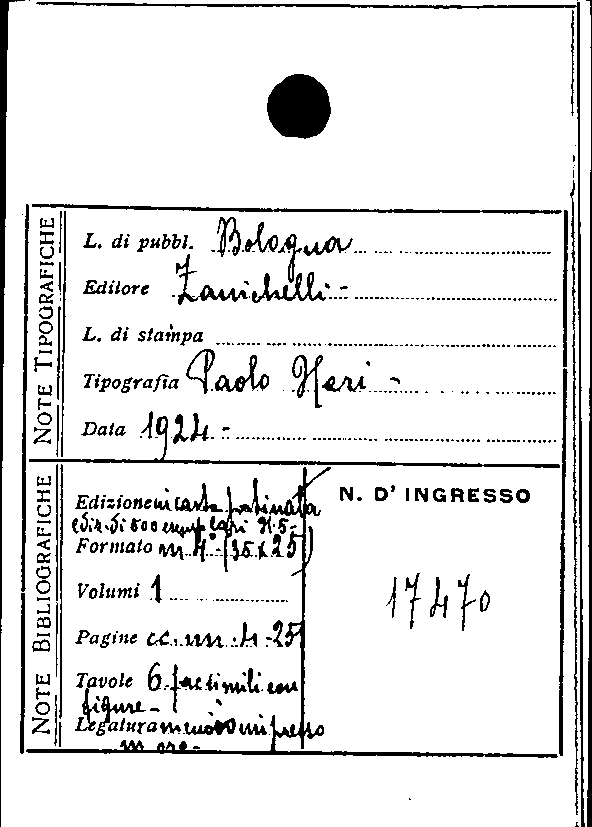 NOTE TIPOGRAFICHE
L. di pubbl. Bologna
Editore Zanichelli -
L. di stampa
Tipografia Paolo Neri -
Data 1924 -
NOTE BIBLIOGRAFICHE
Edizione in carta patinata
ediz. di 500 esemplari N. 5 -
Formato in 4° (35 x 25)
Volumi 1
Pagine cc. nn. 4 - 25
Tavole 6 facsimili con
figure -
Legatura impresso
in oro -
N. D' INGRESSO
17470